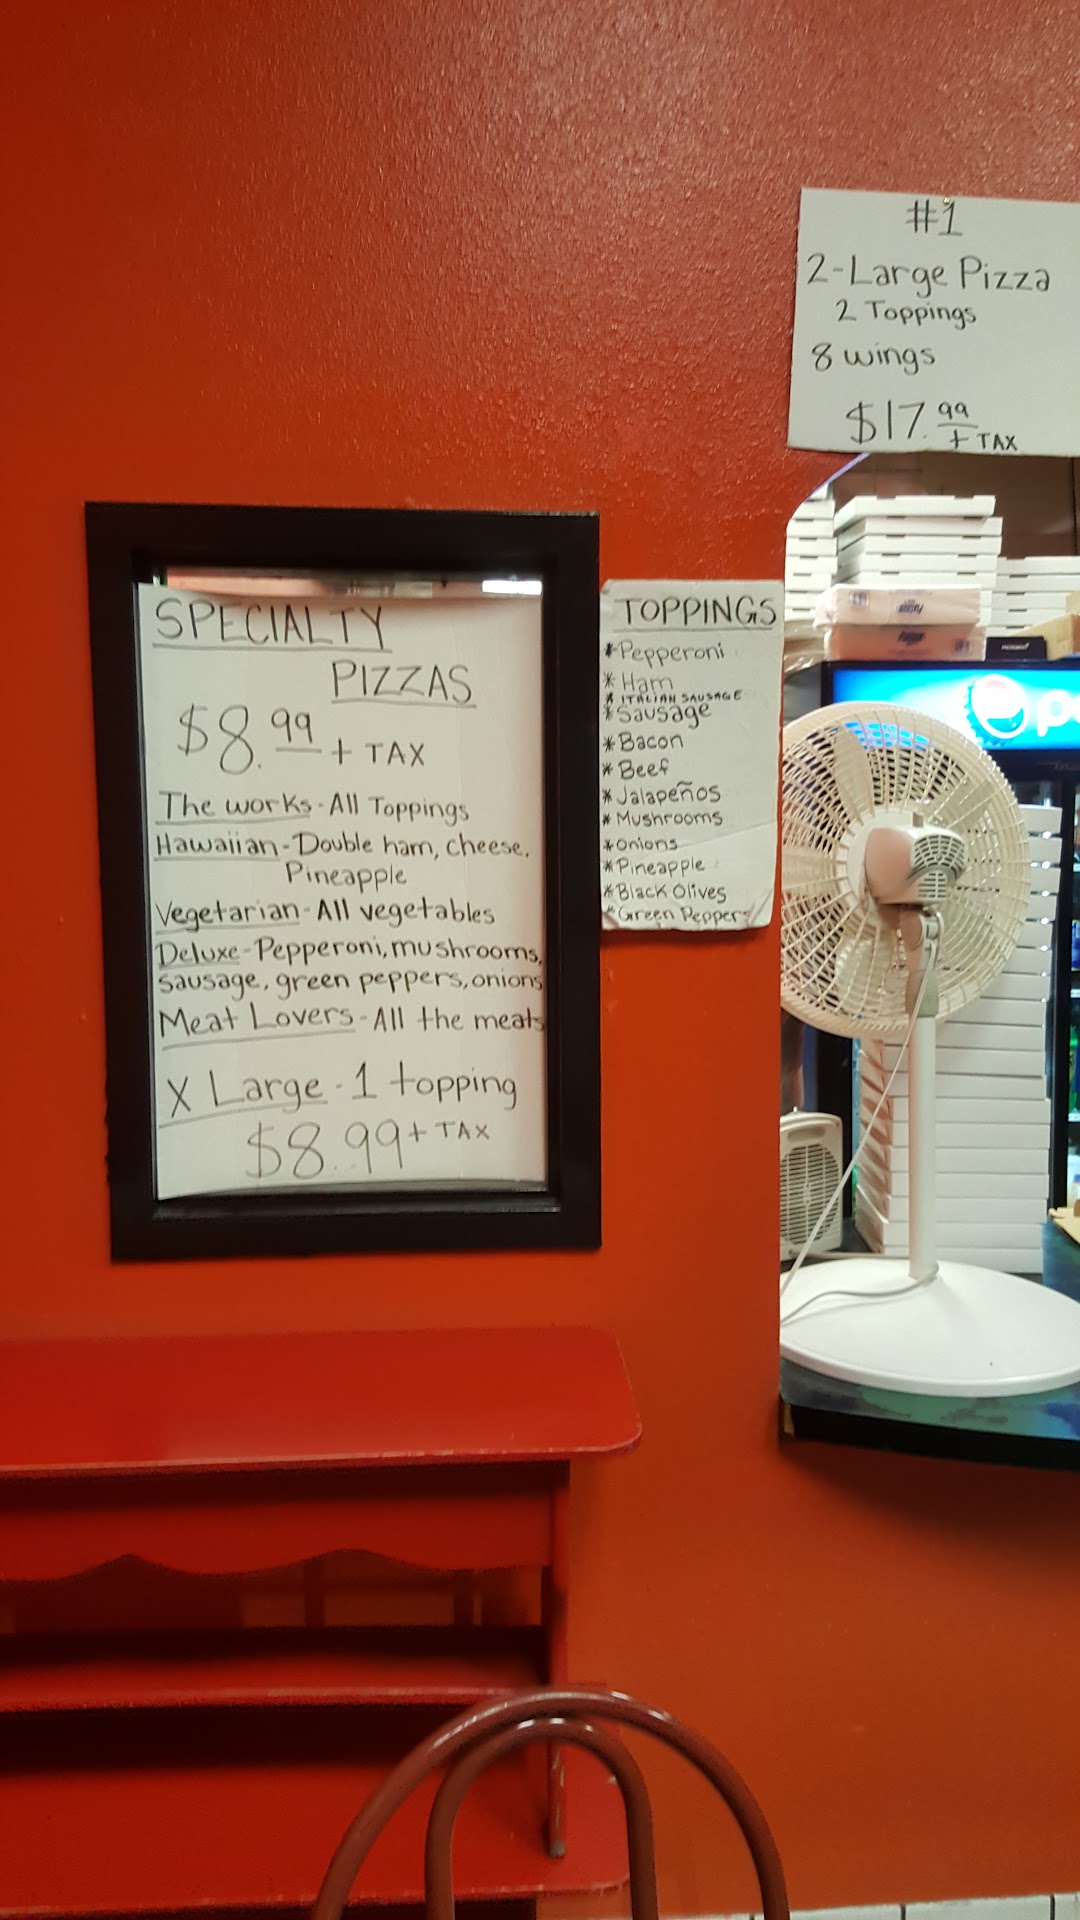 #1
2-Large Pizza
2 Toppings
8 wings
$17.99
+ TAX
SPECIALTY
PIZZAS
$8.99 + TAX
The works-All Toppings
Hawaiian-Double ham, cheese,
Pineapple
Vegetarian-All vegetables
Deluxe-Pepperoni, mushrooms,
sausage, green peppers, onions
Meat Lovers-All the meats
X Large-1 topping
$8.99+ TAX
TOPPINGS
*Pepperoni
*Ham
*ITALIAN SAUSAGE
*Sausage
*Bacon
*Beef
*Jalapeños
*Mushrooms
*onions
*Pineapple
*Black Olives
*Green Peppers